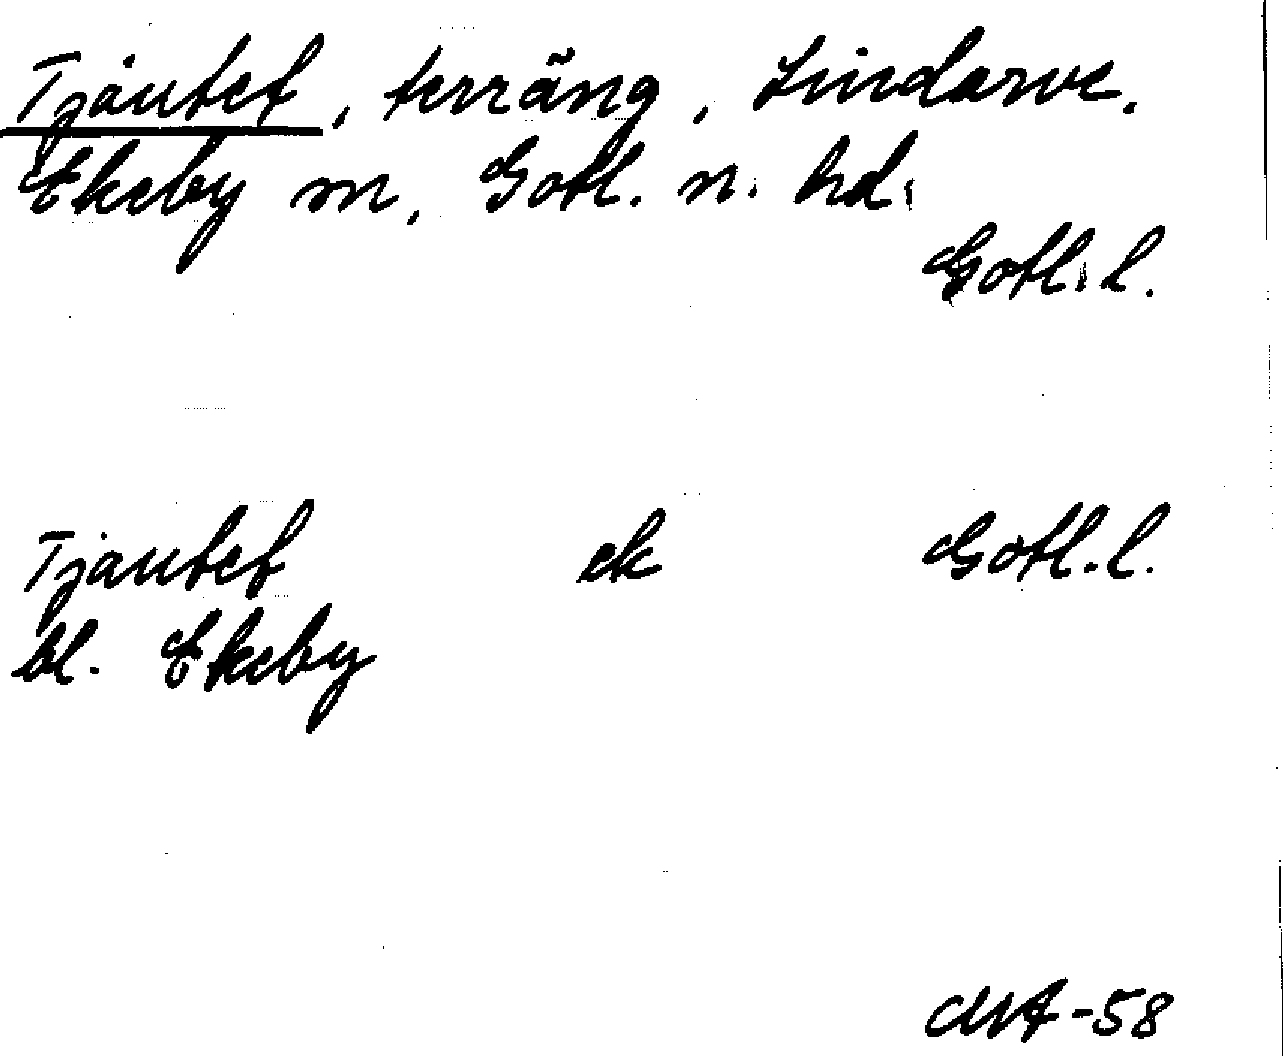 Tjautet, terräng, Lindarve.
Ekeby sn, Gotl. n. hd.
Gotl. l.
Tjautet ek Gotl. l.
bl. Ekeby
-58